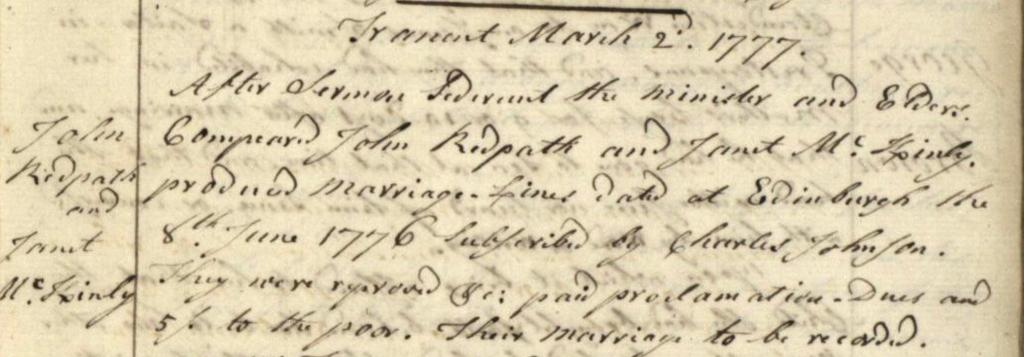 Tranent March 2d. 1777.
After Sermon Sederunt the minister and Elders.
John
Redpath
and
Janet
Mc. Kinly
Compeared John Redpath and Janet Mc. Kinly.
produced marriage-Lines dated at Edinburgh the
8th. June 1776 Subscribed by Charles Johnson.
They were reproved &c: paid proclamation-Dues and
5/. to the poor. Their marriage to be recorded.